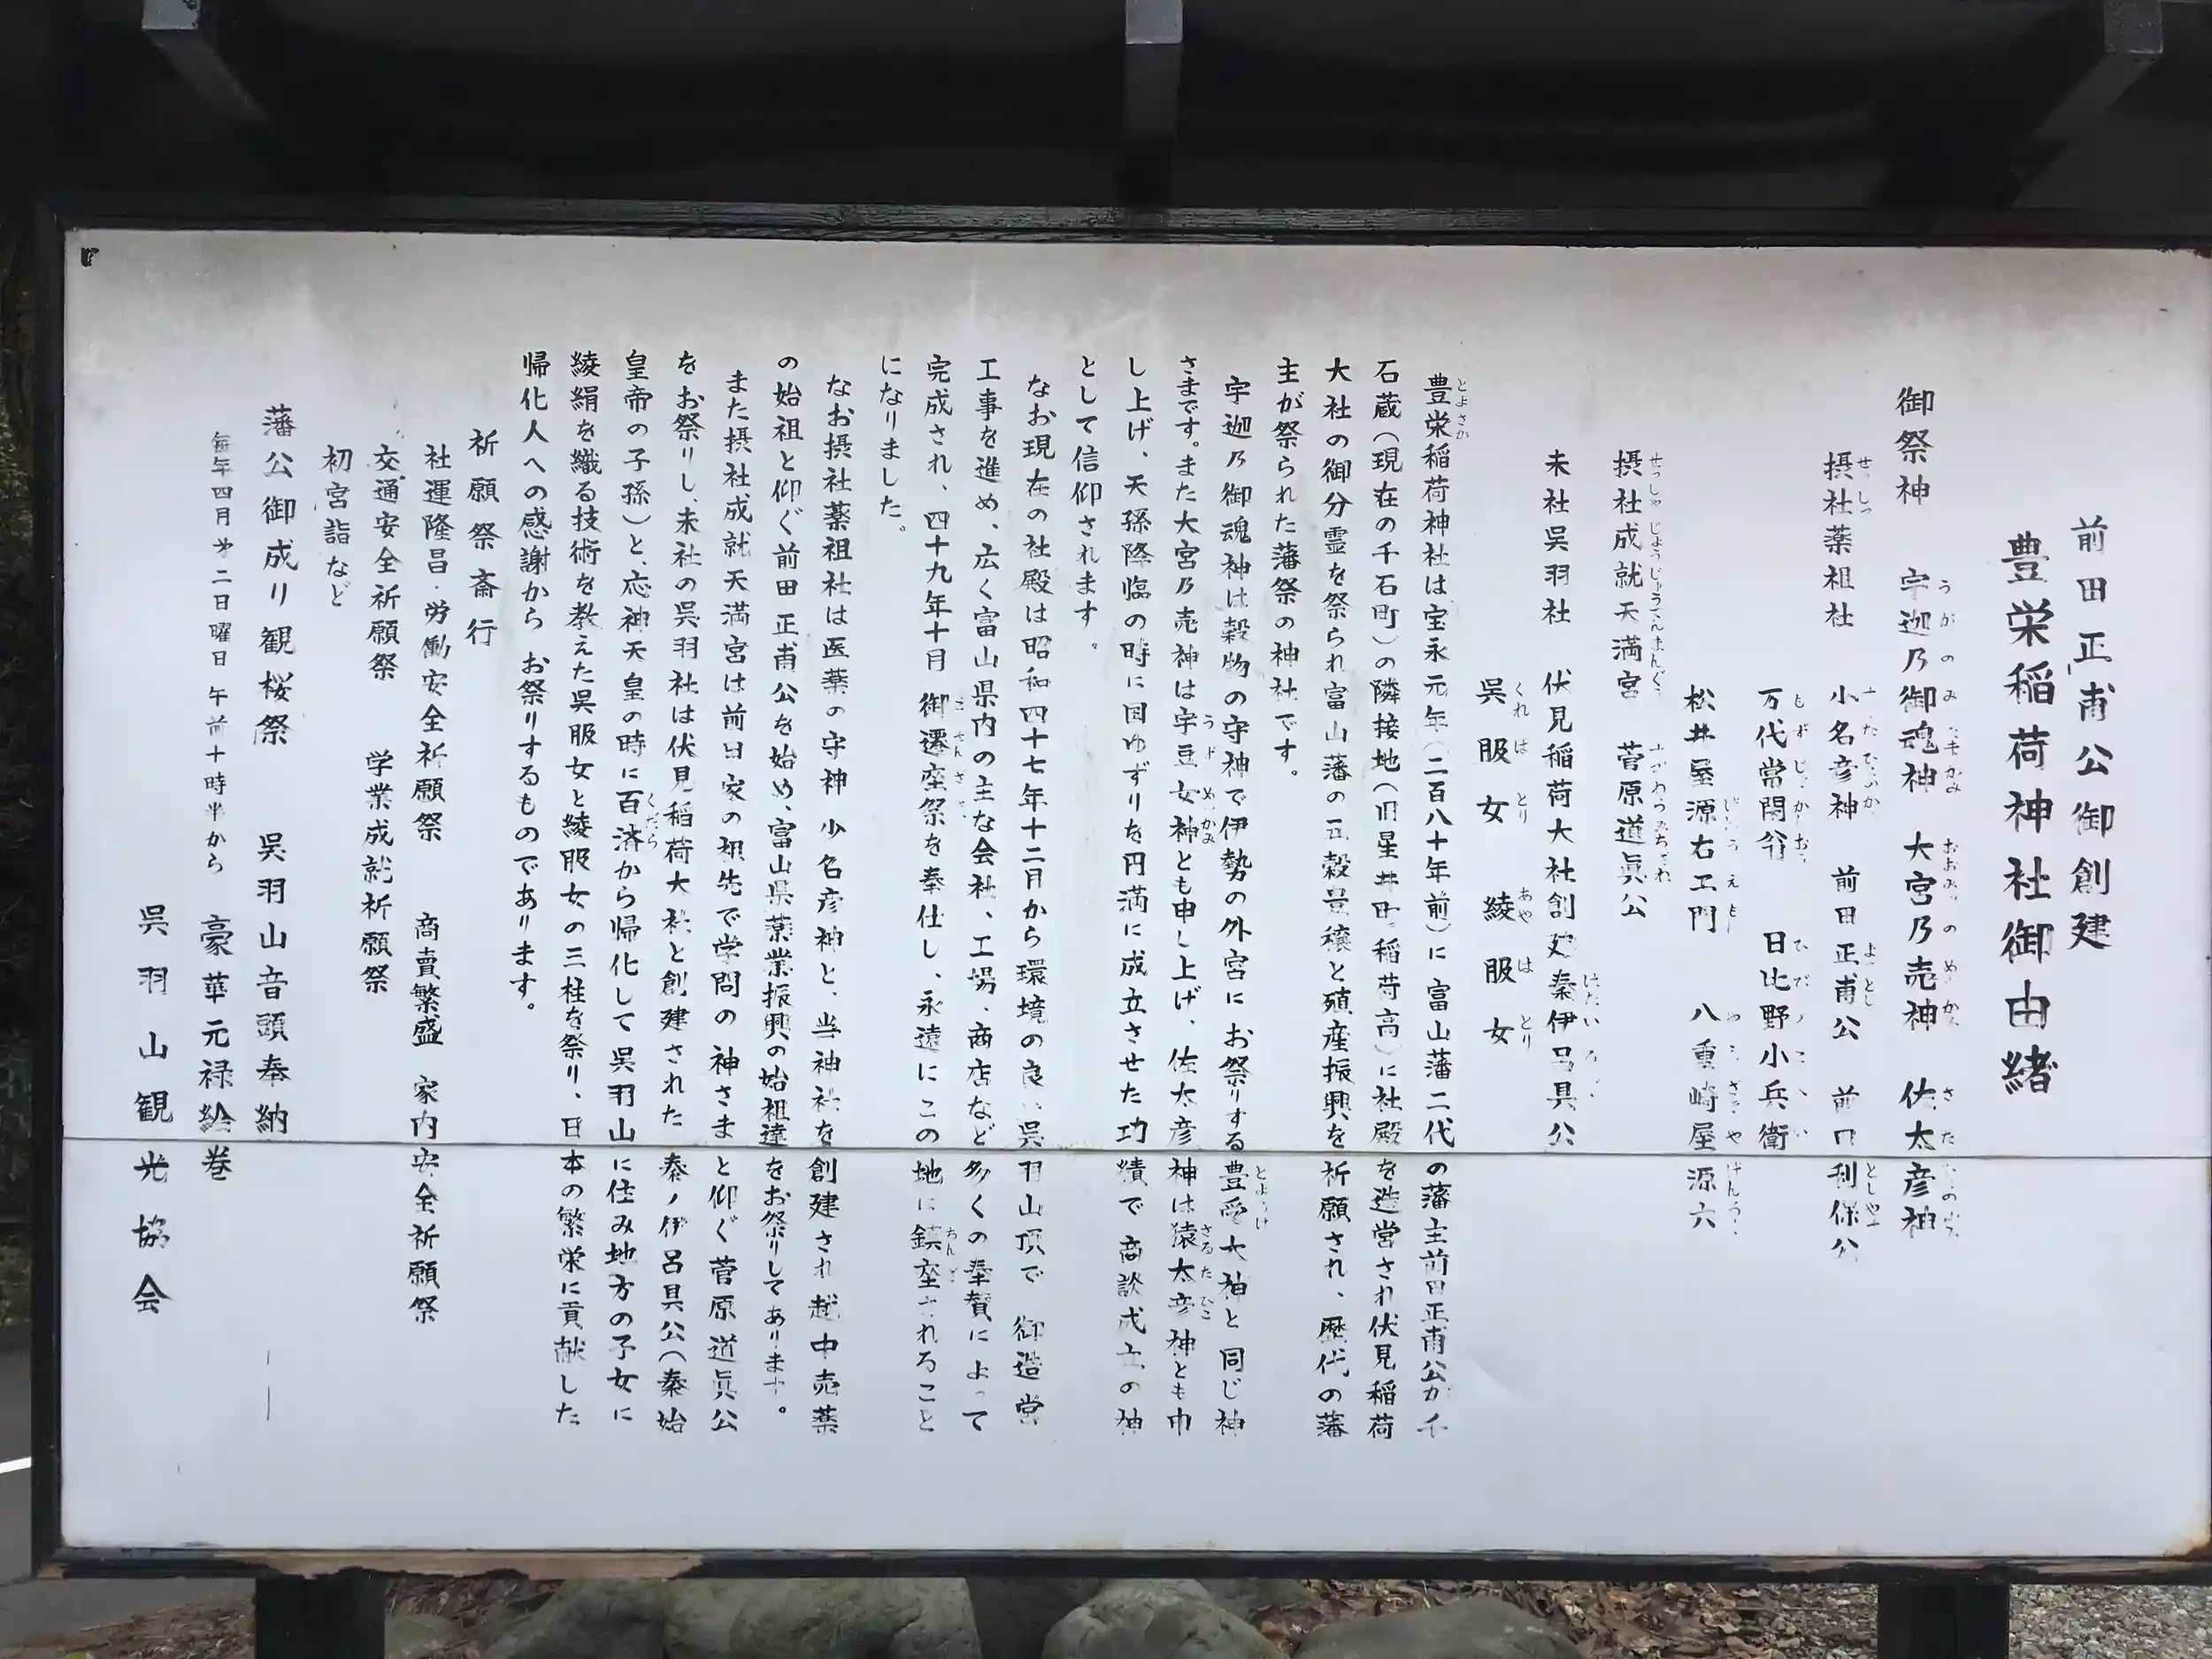 前田正甫公御創建
豊栄稲荷神社御由緒
御祭神 宇迦乃御魂神 大宮乃売神 佐太彦神
摂社薬祖社 小名彦神 前田正甫公 前田利保公
万代常閑翁 日比野小兵衛
松井屋源右エ門 八重崎屋源六
摂社成就天満宮 菅原道眞公
末社呉羽社 伏見稲荷大社創建秦伊呂具公
呉服女 綾服女
豊栄稲荷神社は宝永元年(二百八十年前)に富山藩二代の藩主前田正甫公が千
石蔵(現在の千石町)の隣接地(旧星井町稲荷高)に社殿を造営され伏見稲荷
大社の御分霊を祭られ富山藩の五穀豊穣と殖産振興を祈願され、歴代の藩
主が祭られた藩祭の神社です。
宇迦乃御魂神は穀物の守神で伊勢の外宮にお祭りする豊受大神と同じ神
さまです。また大宮乃売神は宇豆女神とも申し上げ、佐太彦神は猿太彦神とも申
し上げ、天孫降臨の時に国ゆずりを円満に成立させた功績で商談成立の神
として信仰されます。
なお現在の社殿は昭和四十七年十二月から環境の良い呉羽山頂で 御造営
工事を進め、広く富山県内の主な会社、工場、商店など多くの奉賛によって
完成され、四十九年十月 御遷座祭を奉仕し、永遠にこの地に鎮座されること
になりました。
なお摂社薬祖社は医薬の守神 少名彦神と、当神社を創建され越中売薬
の始祖と仰ぐ前田正甫公を始め、富山県薬業振興の始祖達をお祭りしてあります。
また摂社成就天満宮は前田家の祖先で学問の神さまと仰ぐ菅原道眞公
をお祭りし、末社の呉羽社は伏見稲荷大社と創建された秦ノ伊呂具公(秦始
皇帝の子孫)と、応神天皇の時に百済から帰化して呉羽山に住み地方の子女に
綾絹を織る技術を教えた呉服女と綾服女の三柱を祭り、日本の繁栄に貢献した
帰化人への感謝から お祭りするものであります。
祈願祭斎行
社運隆昌・労働安全祈願祭 商賣繁盛 家内安全祈願祭
交通安全祈願祭 学業成就祈願祭
初宮詣など
藩公御成り観桜祭 呉羽山音頭奉納
毎年四月第二日曜日午前十時半から 豪華元禄絵巻
呉羽山観光協会